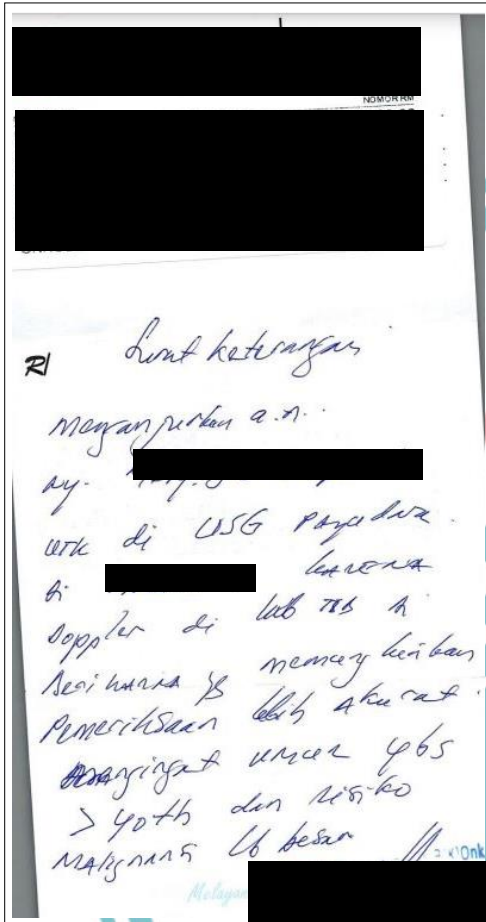 NOMOR RM
R/
Surat keterangan
Menganjurkan a.n.
ny.
utk di USG Payudara
di karena
Doppler di lab tsb di
Beri warna yg memungkinkan
Pemeriksaan lebih akurat.
mengingat umur ybs
> 40 th dan risiko
Malignansi lb besar
Onk
Melayan